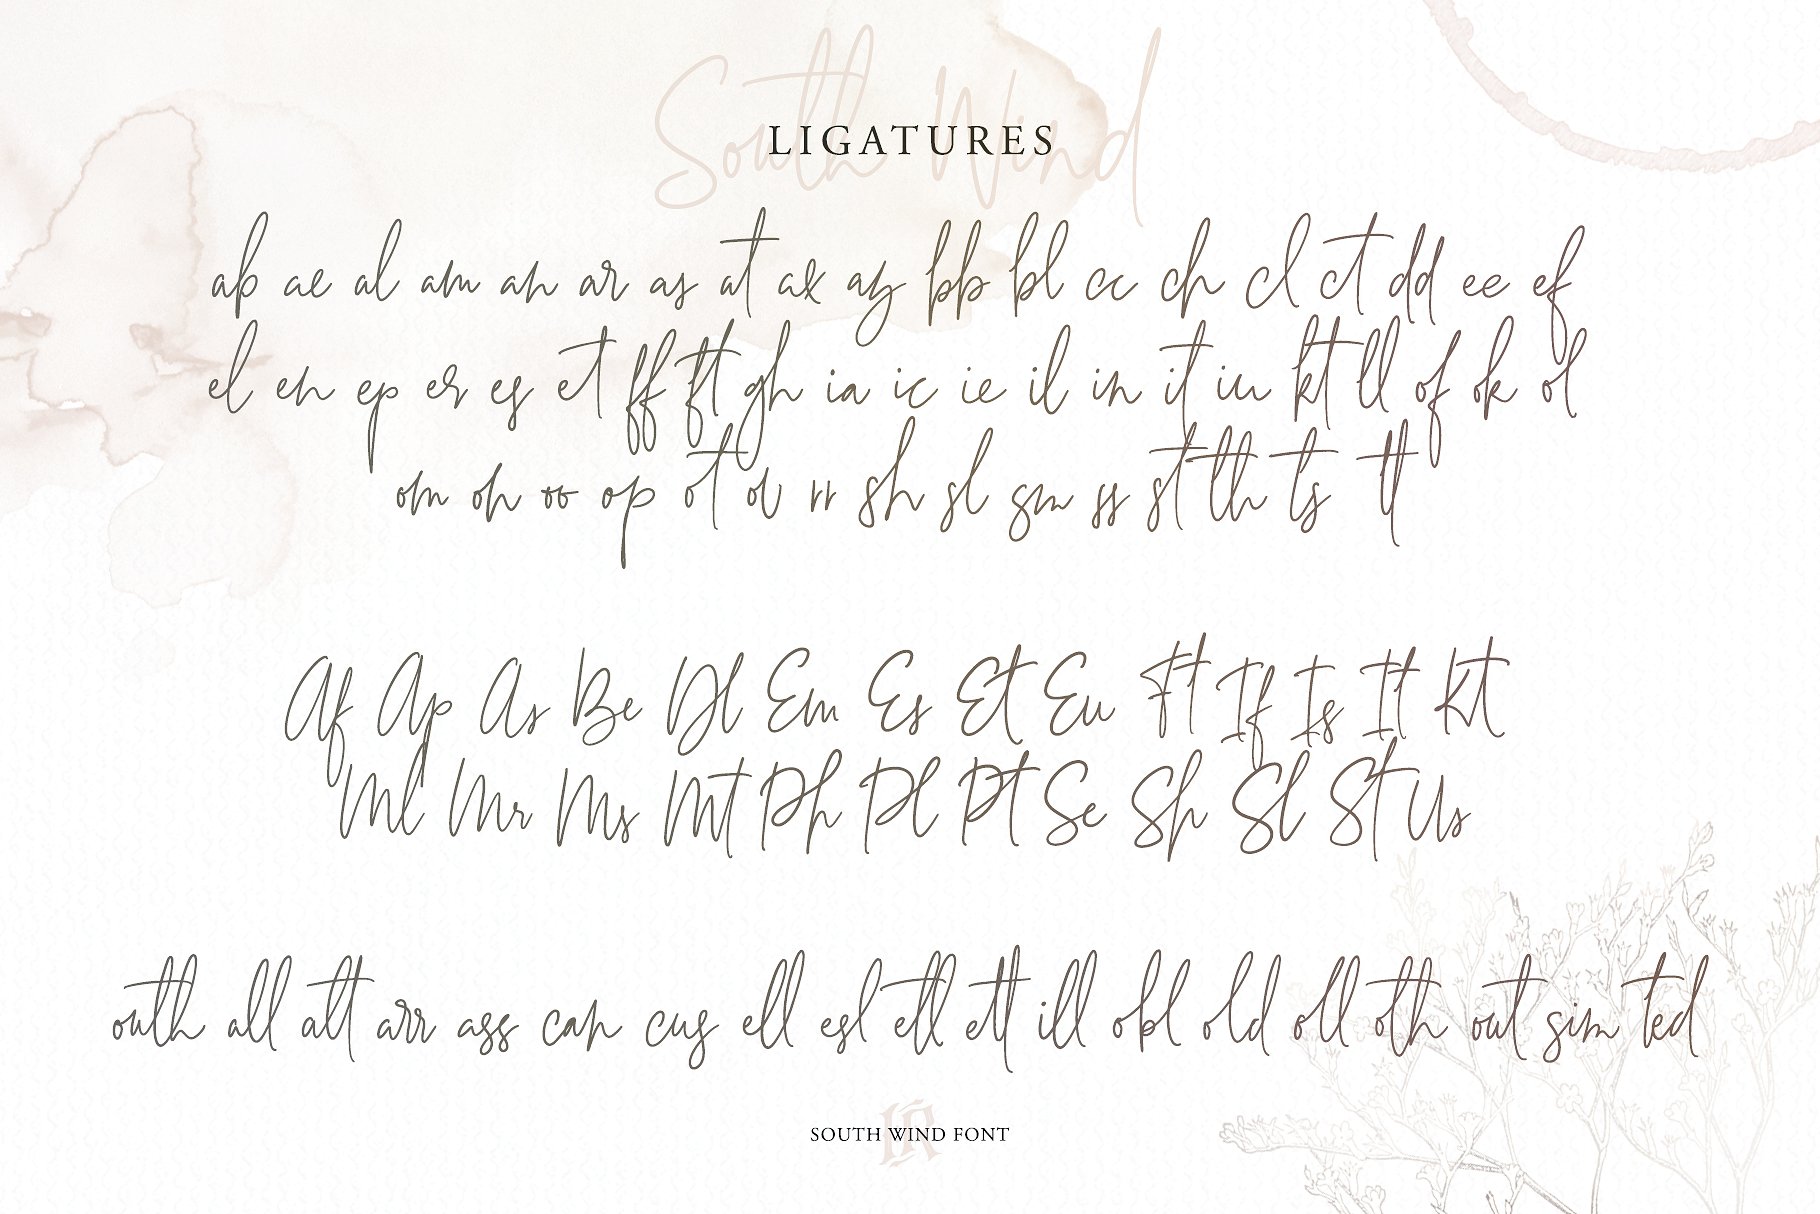 South Wind
LIGATURES
ab ae al am an ar as at ax ay bb bl cc ch cl ct dd ee ef
el en ep er es et ff ft gh ia ic ie il in it iu kt ll of ok ol
om on oo op ot ov rr sh sl sm ss st th ts tt
Af Ap As Be Dl Em Es Et Eu Ft If Is It Kt
Ml Mr Ms Mt Ph Pl Pt Se Sh Sl St Us
outh all att arr ass can cus ell esl etl ett ill obl old oll oth out sim ted
SOUTH WIND FONT